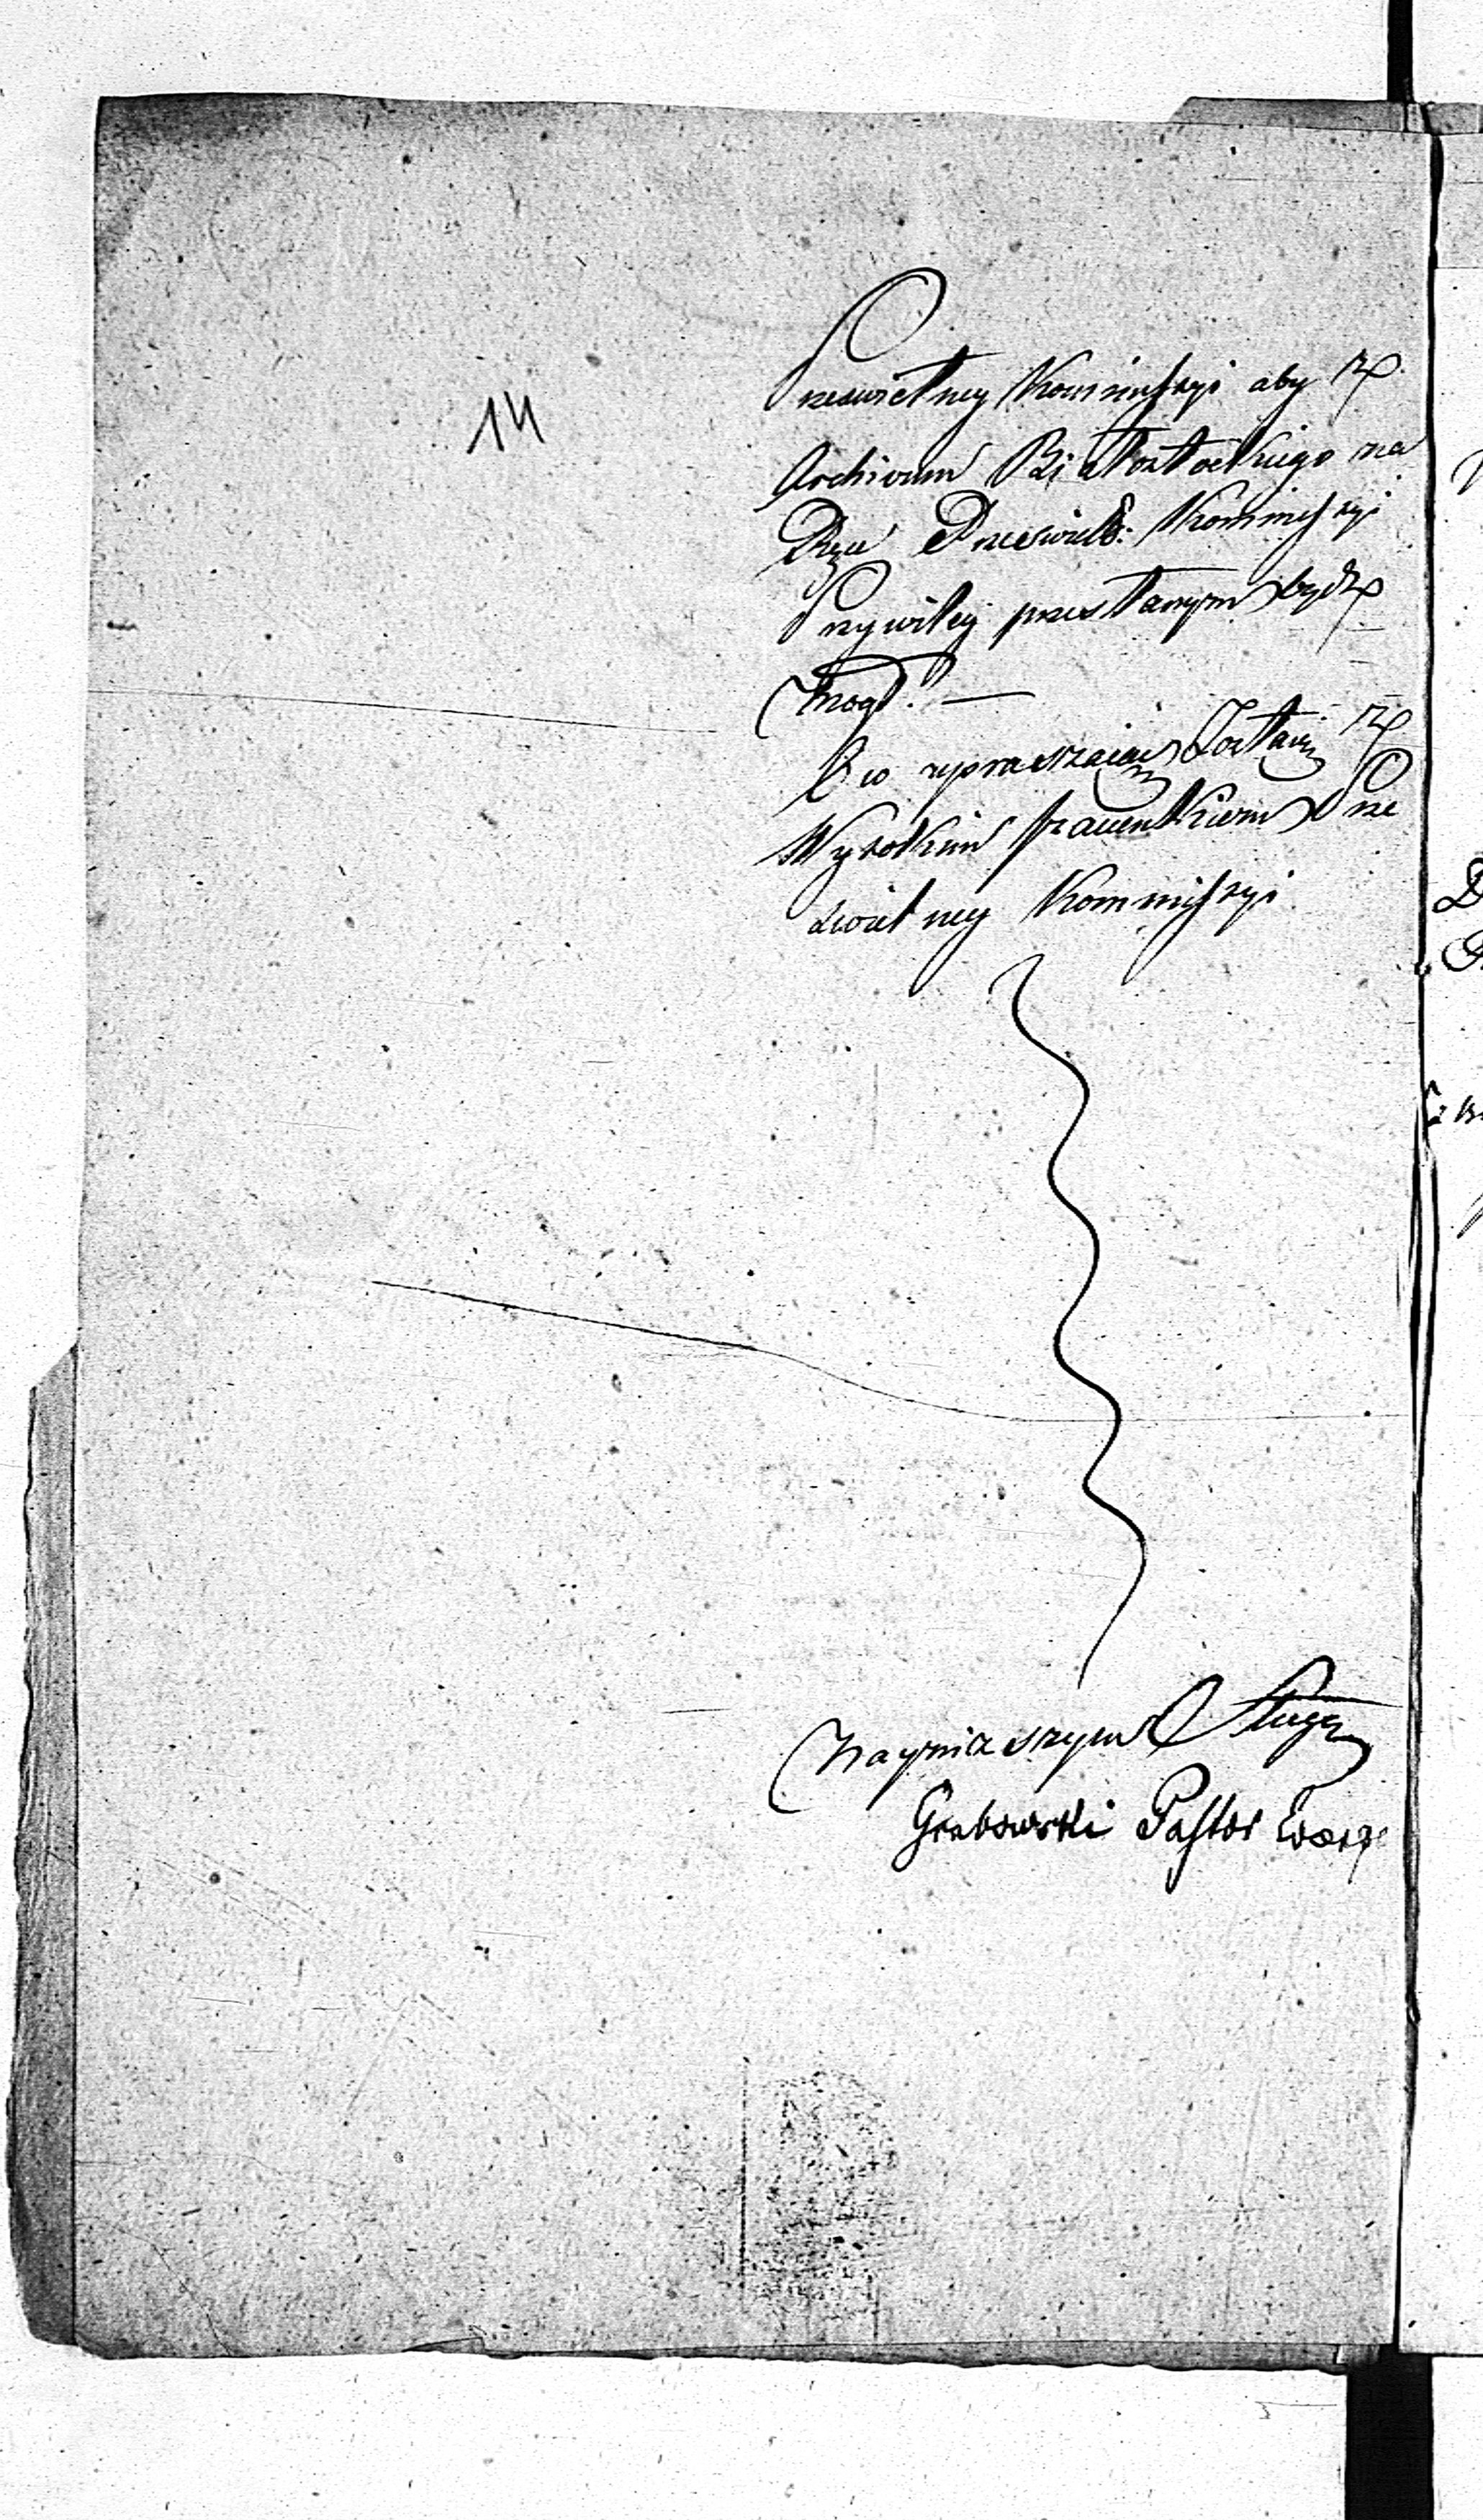 14
Przeswietney Kommissyi aby z
Archivum Białostockiego na
Ręce Przeswiet: Kommissyi
Przywiley przesłanym bydz
mogł. —
O co upraszaiąc Zostaię z
Wysokim szacunkiem Prze
swietney Kommissyi
Nayniższym Sługą
Grabowski Pastor Ewang